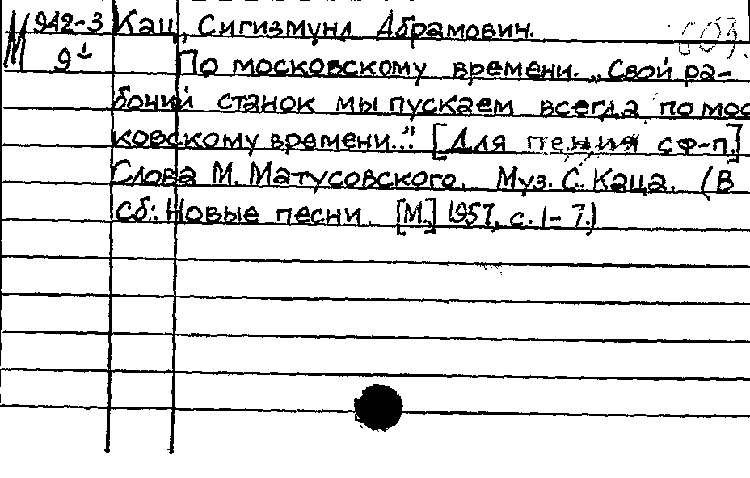 М 942-3 Кац, Сигизмунд Абрамович.
9 По московскому времени. „Свой ра-
бочий станок мы пускаем всегда по мос
ковскому времени..." [Для пения с ф-п.]
Слова М. Матусовского. Муз. С. Каца. (В
сб: Новые песни. [М.] 1957, с. 1-7.)